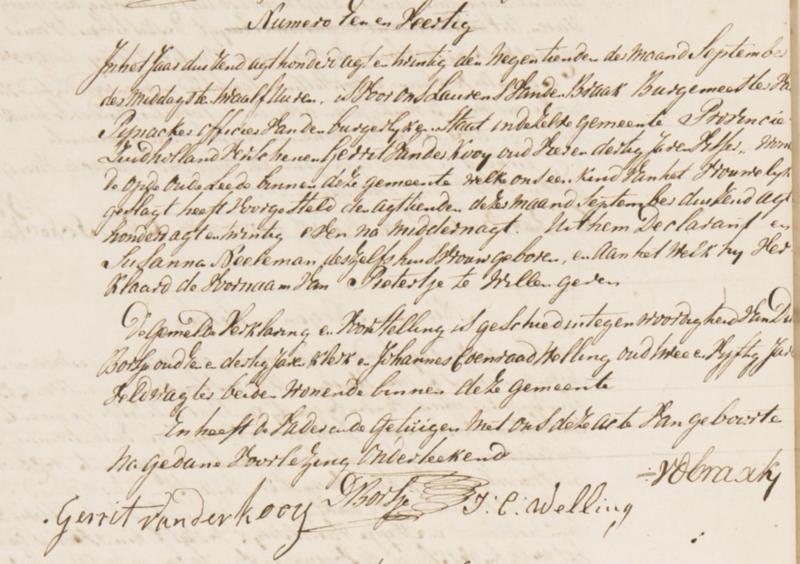 Numero Een en Veertig
In het Jaar duizend agt honderd agt en twintig den Negentienden der Maand September
des Middags te twaalf Uuren, is Voor ons Laurens Van den Braak Burgemeester Van
Pijnacker officier Van den burgerlyken Staat in dezelve gemeente Provincie
Zuidholland Verschenen Gerrit Van der Kooy oud Vier en dertig Jaren Visser, Wonen
de op de oude Leede binnen deze gemeente welke ons een Kind Van het Vrouwelyk
geslagt heeft Voorgesteld den agttienden dezer maand September duizend agt
honderd agt en twintig even na middernagt. Uit hem Declarant en
Susanna Neeleman, deszelfs huisvrouw geboren, en aan het welk hy Ver
klaard de Voornaam Van Pietertje te Willen geven
De gemelde Verklaring en Voorstelling is geschied in tegenwoordigheid Van D
Borsje oud en dertig Jaren Klerk en Johannes Coenraad Welling oud twee en Vyftig Jaar
Veldwagter beiden Wonende binnen deze gemeente
En heeft de Vader en de Getuigen Met ons deze acte Van geboorte
Na gedane Voorlezing Onderteekend
Gerrit van der kooy D Borsje J: C: Welling vdbraak